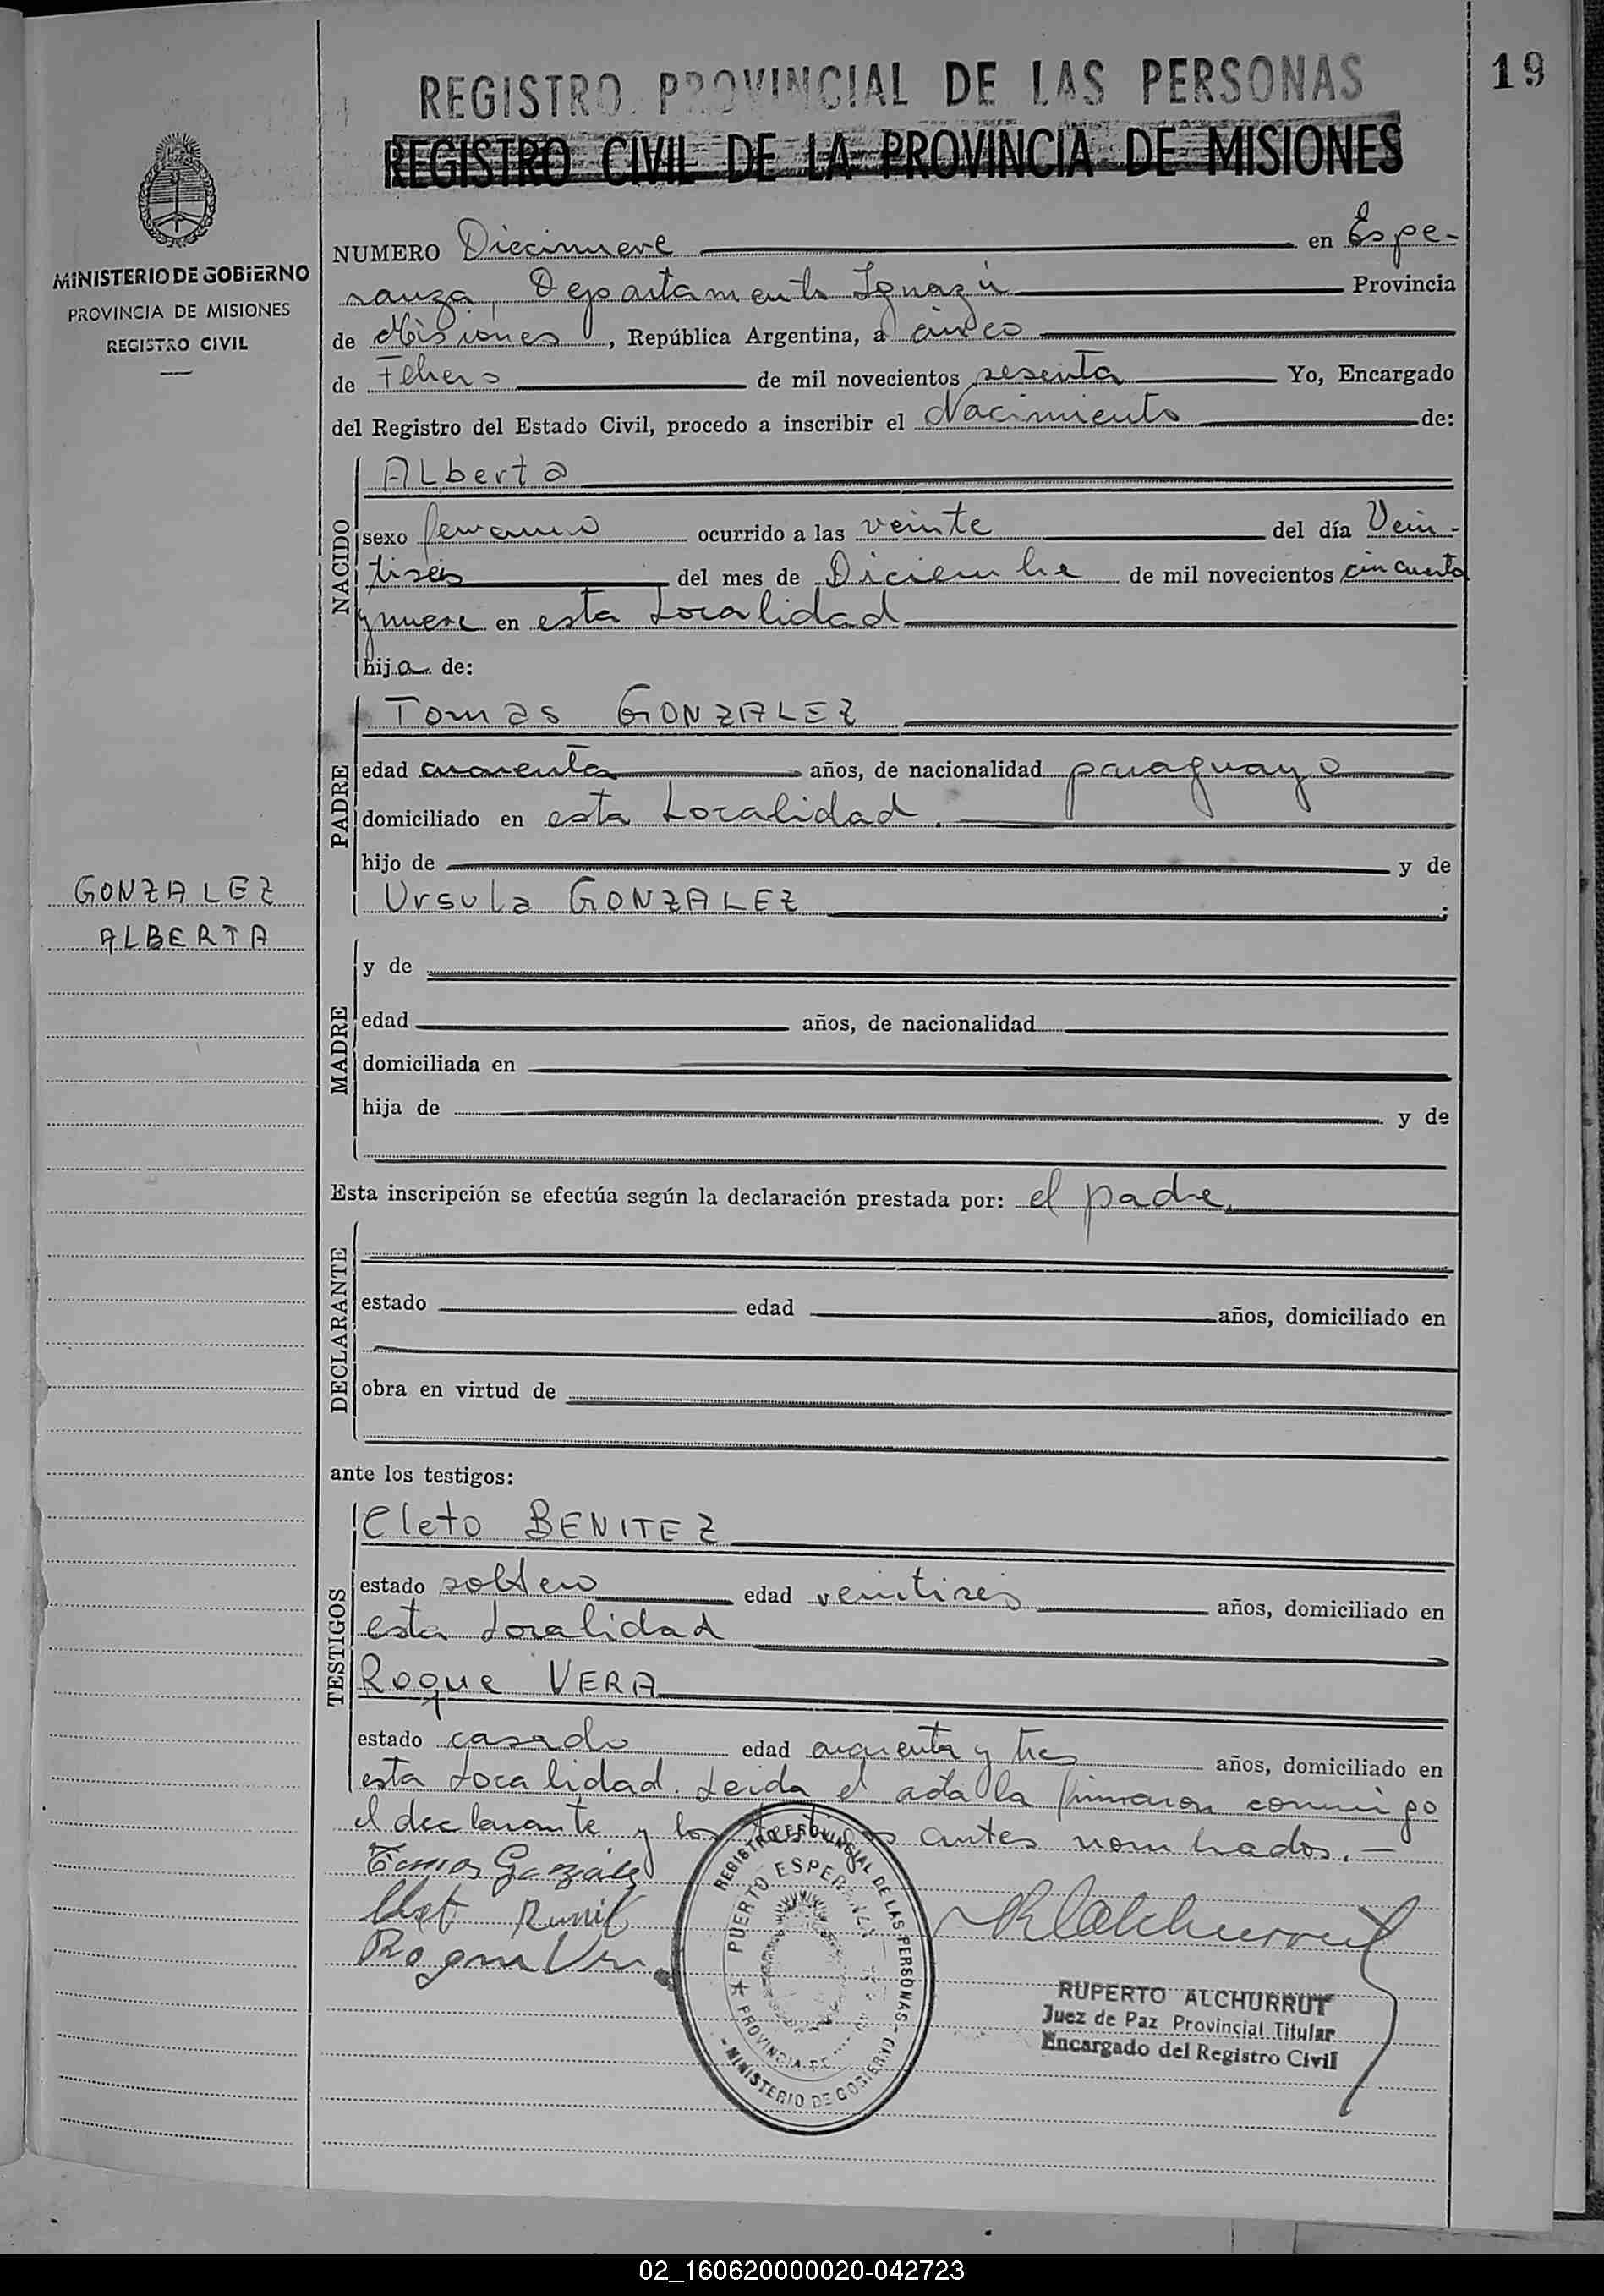 19
REGISTRO PROVINCIAL DE LAS PERSONAS
REGISTRO CIVIL DE LA PROVINCIA DE MISIONES
MINISTERIO DE GOBIERNO
PROVINCIA DE MISIONES
REGISTRO CIVIL
NUMERO Diecinueve en Espe-
ranza, Departamento Iguazú Provincia
de Misiones, República Argentina, a cinco
de Febrero de mil novecientos sesenta Yo, Encargado
del Registro del Estado Civil, procedo a inscribir el Nacimiento de:
NACIDO
Alberta
sexo femenino ocurrido a las veinte del día Vein-
del mes de Diciembre de mil novecientos cincuenta
y nueve en esta Localidad
hija de:
PADRE
Tomas GONZALEZ
edad cuarenta años, de nacionalidad paraguaya
domiciliado en esta Localidad.
hijo de y de
Ursula GONZALEZ ;
GONZALEZ
ALBERTA
MADRE
y de
edad años, de nacionalidad
domiciliada en
hija de y de
Esta inscripción se efectúa según la declaración prestada por: el padre,
DECLARANTE
estado edad años, domiciliado en
obra en virtud de
ante los testigos:
TESTIGOS
Cleto BENITEZ
estado soltero edad años, domiciliado en
esta Localidad
Roque VERA
estado casado edad cuarenta y tres años, domiciliado en
esta Localidad. Leida el acta la firmaron conmigo
el declarante y los testigos antes nombrados.-
Tomas González
Roque Vera
REGISTRO PROVINCIAL DE LAS PERSONAS
PUERTO ESPERANZA
PROVINCIA DE
- MINISTERIO DE GOBIERNO -
RUPERTO ALCHURRUT
Juez de Paz Provincial Titular
Encargado del Registro Civil
02_160620000020-042723